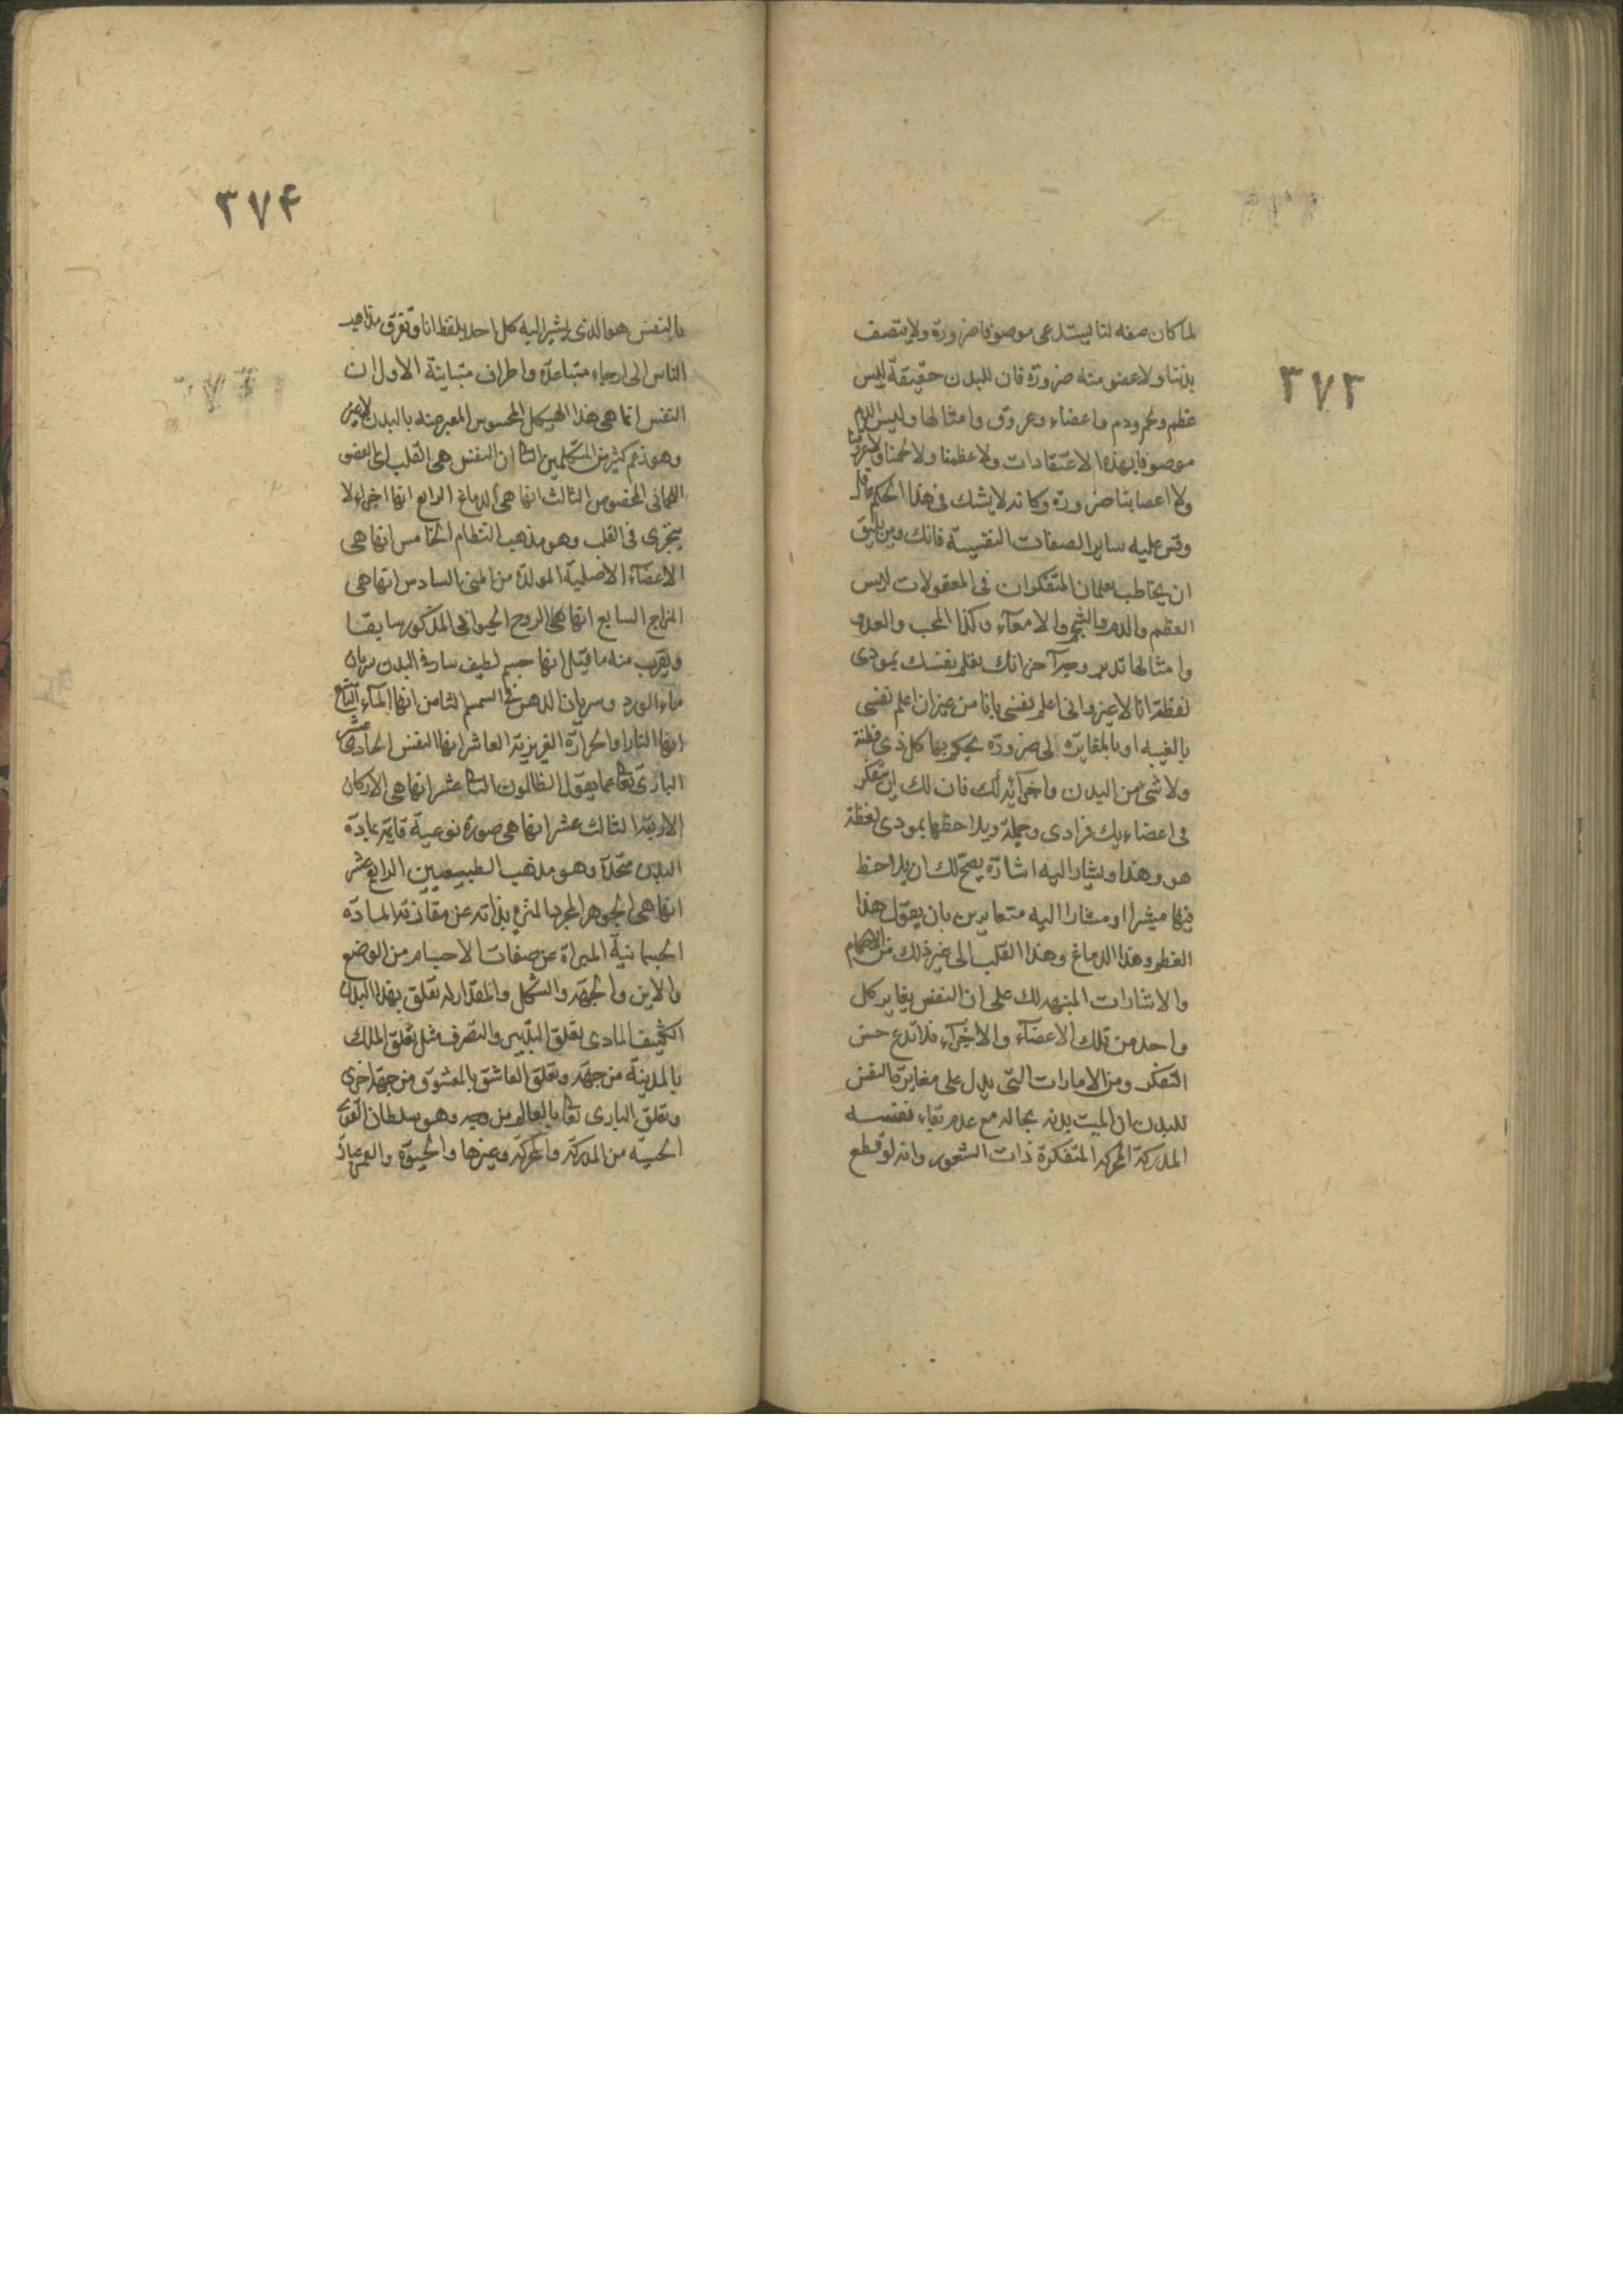 ٣٧٣
لما كان صفه لنا ليستدعى موصوفا ضرورة ولا يتصف
بدننا ولا عضو منه ضرورة فان للبدن حقيقة ليس
عظم ولحم ودم واعضاء وعروق وامثالها وليس الدم
موصوفا بهذه الاعتقادات ولا عظمنا ولا لحمنا ولا عروقنا
ولا اعصابنا ضرورة وكانه لا يشك فى هذا الحكم عاقل
وقس عليه ساير الصفات النفسية فانك ومن يليق
ان يخاطب يعلمان المتفكران فى المعقولات ليس
العظم والدم والشحم والامعاء وكذا المحب والعدو
وامثالها تدبر وجه آخر انك تعلم نفسك بمودى
لفظة انا لا غير وانى اعلم نفسى بانا من غير ان اعلم نفسى
بالغيبه او بالمغايره الى ضرورة يحكم بها كل ذى فطنة
ولا شىء من البدن واجزائه لك فان لك ان تتفكر
فى اعضاءيك فرادى وجملة ويلاحظها بمودى لفظة
هو وهذا ويشار اليه اشارة يصح لك ان يلاحظ
فيها مشيرا ومشارا اليه متغايرين بان يقول هذا
العظم وهذا الدماغ وهذا القلب الى غير ذلك من الافهام
والاشارات المنبهه لك على ان النفس يغاير كل
واحد من تلك الاعضآء والاجزآء فلا تدع حسن
التفكر ومن الامارات التى يدل على مغايرة النفس
للبدن ان الميت بدنه بحاله مع عدم بقاء نفسه
المدركة المحركه المتفكرة ذات الشعور وانه لو قطع
٣٧۴
بالنفس هو الذى يشير اليه كل احد بلفظ انا وتفرق مذاهب
الناس الى ارجاء متباعدة واطراف متباينة الاول ان
النفس انما هى هذا الهيكل المحسوس المعبر عنه بالبدن لا غير
وهو زعم كثير من المتكلمين الثا ان النفس هى القلب اى العضو
اللحمانى المخصوص الثالث انها هى الدماغ الرابع انها اجزاء لا
يتجزى فى القلب وهو مذهب النظام الخامس انها هى
الاعضآء الاصلية المولدة من المنى السادس انها هى
المزاج السابع انها هى الروح الحيوانى المذكور سابقا
ويقرب منه ما قيل انها جسم لطيف سار فى البدن سريان
ماء الورد وسريان الدهن فى السمسم الثامن انها المآء التاسع
انها النار او الحرارة الغريزية العاشر انها النفس الحادى عشر انها
البارى تعا عما يقول الظالمون الثا عشر انها هى الاركان
الاربعة الثالث عشر انها هى صورة نوعية قايمة بمادة
البدن متحدة وهو مذهب الطبيعيين الرابع عشر
انها هى الجوهر المجرد المنزه بذاته عن مقارنة المادة
الجسمانية المبراة عن صفات الاجسام من الوضع
والاين والجهة والشكل والمقدار له تعلق بهذا البدن
الكثيف المادى تعلق التدبير والتصرف مثل تعلق الملك
بالمدينة من جهة وتعلق العاشق بالمعشوق من جهة اخرى
وتعلق البارى تعا بالعالم من وجه وهو سلطان القوى
الحسيه من المدركة والمحركة وغيرها والحيوة